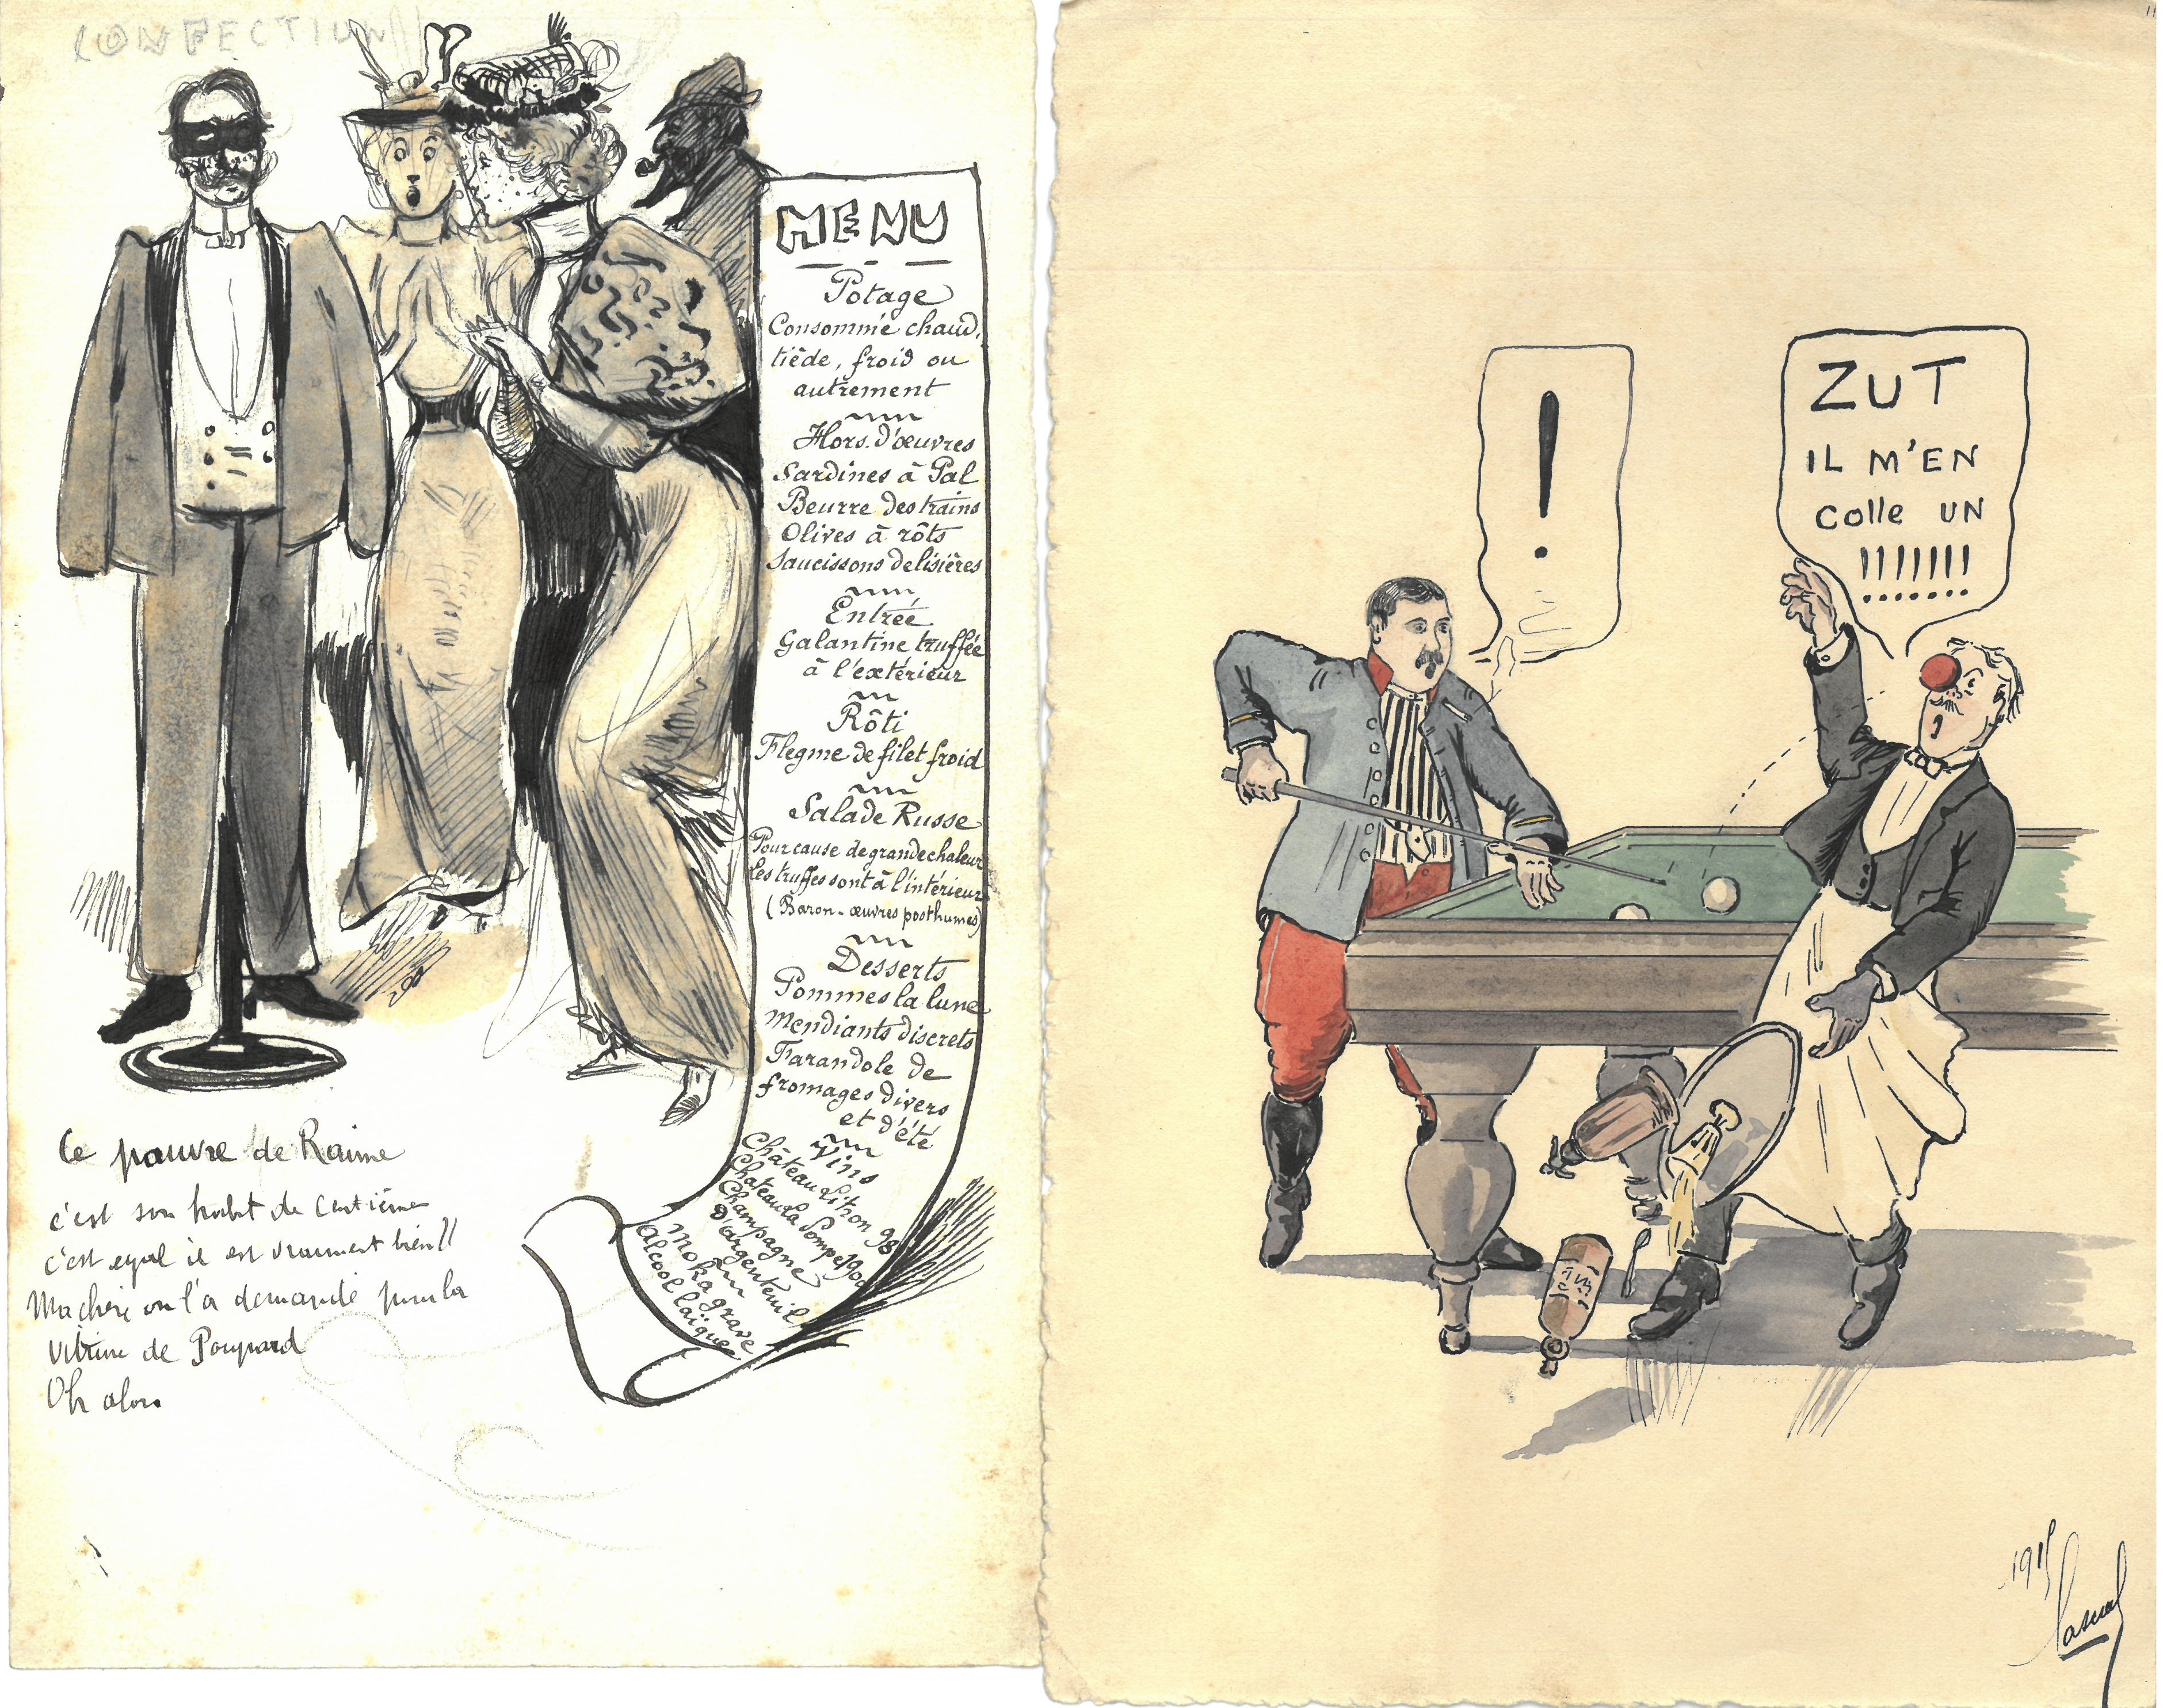 CONFECTION
MENU
Potage
Consommé chaud,
tiède, froid ou
autrement
Hors-d'œuvres
Sardines à Pal
Beurre des trains
Olives à rôts
Saucissons de lisières
Entrée
Galantine truffée
à l'extérieur
Rôti
Flegme de filet froid
Salade Russe
Pour cause de grande chaleur
les truffes sont à l'intérieur
(Baron-œuvres posthumes)
Desserts
Pommes la lune
Mendiants discrets
Farandole de
fromages divers
et d'été
Vins
Château Litron 98
Chateau la Pompe 1900
Champagne
D'argenteuil
Moka grave
Alcool laïque
Ce pauvre de Raime
c'est son habit de
c'est egal il est vraiment bien !!
Ma chère on l'a demandé pour la
vitrine de Poupard
Oh alors
!
ZUT
IL M'EN
Colle UN
!!!!!!!
RHUM